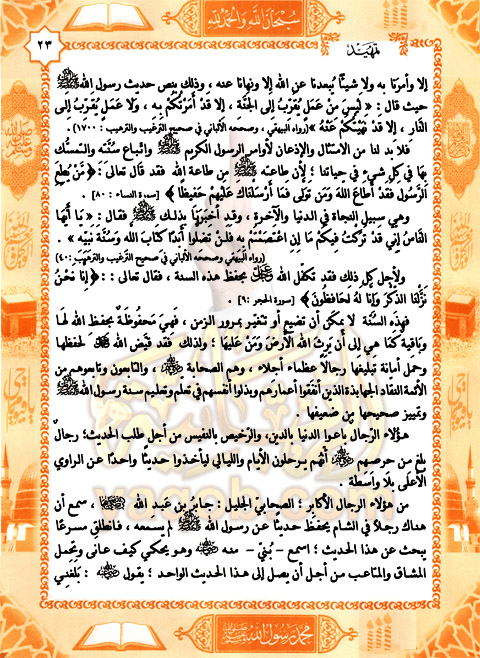 سبحان الله والحمد لله
٢٣
تمهيد
إلا وأمرنا به ولا شيئًا يُبعدنا عن الله إلا ونهانا عنه ، وذلك بنص حديث رسول الله ﷺ
حيث قال : « لَيْسَ مِنْ عَمَلٍ يُقَرِّبُ إلى الجَنَّة ، إلا قَدْ أَمَرْتُكُمْ بِهِ ، وَلا عَمَلٍ يُقَرِّبُ إلى
النَّار ، إلا قَدْ نَهَيْتُكُمْ عَنْهُ » (رواه البيهقي ، وصححه الألباني في صحيح الترغيب والترهيب : ١٧٠٠) .
فلا بد لنا من الامتثال والإذعان لأوامر الرسول الكريم ﷺ واتباع سُنَّته والتمسُّك
بها في كل شيء في حياتنا ؛ لأن طاعته ﷺ من طاعة الله فقد قال تعالى : ﴿ مَّنْ يُطِعِ
الرَّسُولَ فَقَدْ أَطَاعَ اللهَ وَمَن تَوَلَّى فَمَا أَرْسَلْنَاكَ عَلَيْهِمْ حَفِيظًا ﴾ [سورة النساء : ٨٠] .
وهي سبيل النجاة في الدنيا والآخرة ، وقد أخبرنا بذلك ﷺ فقال : « يا أيها
النَّاسُ إِنِّي قَدْ تَرَكْتُ فِيكُمْ مَا إِنِ اعْتَصَمْتُمْ بِهِ فَلَنْ تَضِلُّوا أَبَدًا كِتَابَ اللهِ وَسُنَّةَ نَبِيِّه » .
(رواه البيهقي وصححه الألباني في صحيح الترغيب والترهيب :٤٠)
ولأجل كل ذلك فقد تكفَّل الله ﷻ بحفظ هذه السنة ، فقال تعالى : ﴿ إِنَّا نَحْنُ
نَزَّلْنَا الذِّكْرَ وَإِنَّا لَهُ لَحَافِظُونَ ﴾ [سورة الحجر :٩] .
فهذه السُّنَّة لا يمكن أن تضيع أو تتغير بمرور الزمن ، فهي مَحفُوظَةٌ بحفظ الله لها
وباقية كما هي إلى أن يرث الله الأرض ومن عليها ؛ ولذلك فقد قيَّض الله لحفظها
وحمل أمانة تبليغها رجالًا عظماء أجلاء ، وهم الصحابة ، والتابعون وتابعوهم من
الأئمة النقاد الجهابذة الذين أنفقوا أعمارهم وبذلوا أنفسهم في تعلم وتعليم سنة رسول الله ﷺ
وتمييز صحيحها من ضعيفها .
هؤلاء الرجال باعوا الدنيا بالدين، والرَّخيص بالنفيس من أجل طلب الحديث؛ رجال
بلغ من حرصهم أنهم يرحلون الأيام والليالي ليأخذوا حديثًا واحدًا عن الراوي
الأعلى بلا واسطة .
من هؤلاء الرجال الأكابر ؛ الصحابي الجليل : جابر بن عبد الله ، سمع أن
هناك رجلًا في الشام يحفظ حديثًا عن رسول الله ﷺ لم يسمعه ، فانطلق مسرعًا
يبحث عن هذا الحديث ؛ اسمع - بُنيَّ - منه وهو يحكي كيف عانى وتحمل
المشاق والمتاعب من أجل أن يصل إلى هذا الحديث الواحد ؛ يقول : بَلَغَنِي
محمد رسول الله ﷺ